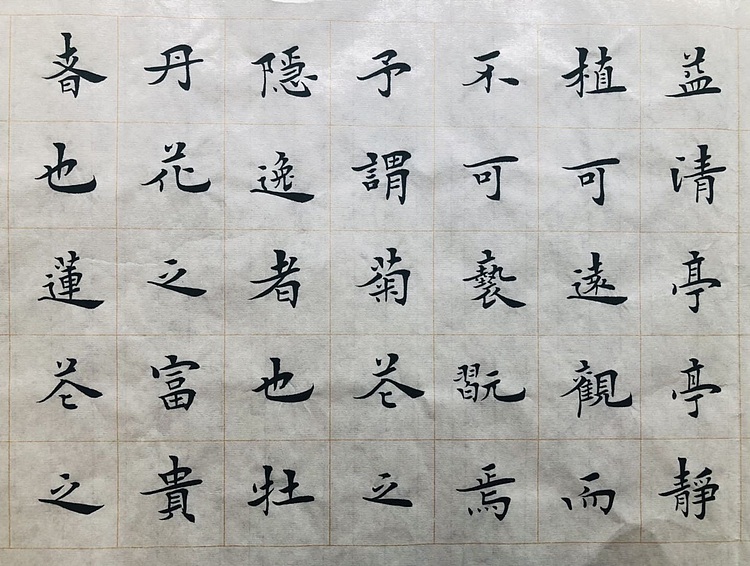 益清亭亭靜
植可遠觀而
不可褻翫焉
予謂菊花之
隱逸者也牡
丹花之富貴
者也蓮花之